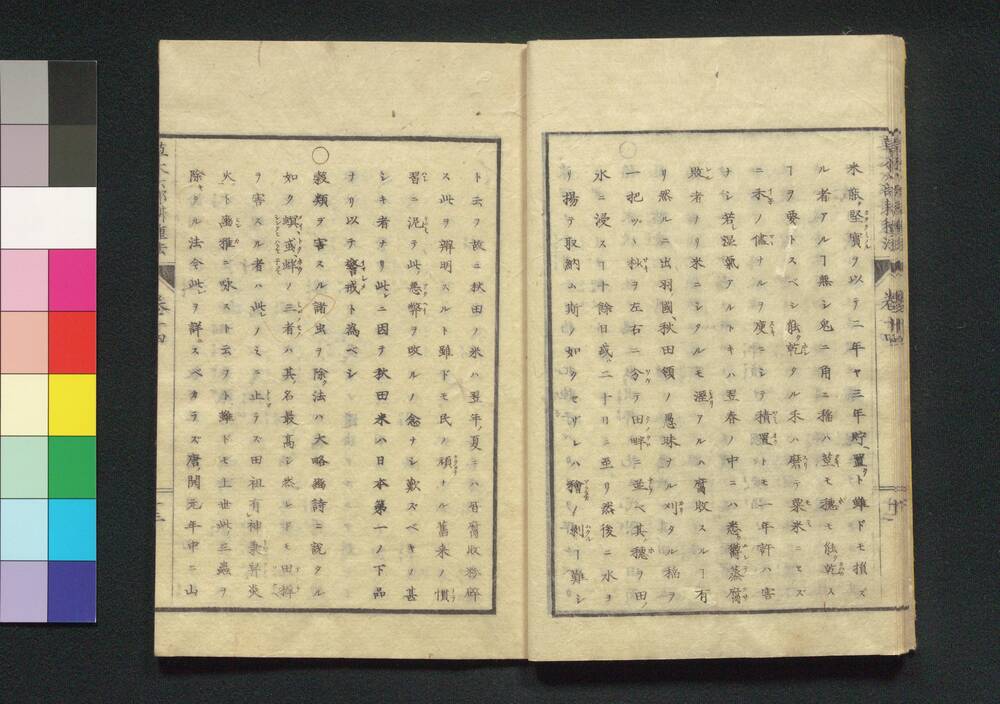 米、能堅實ヲ以テ二年ヤ三年貯置クト雖ドモ損ズ
ル者アルヿ無シ兎ニ角ニ稲ハ莖モ穂モ能乾ス
ヿヲ要トスベシ能乾タル禾ハ磨テ粟米ニセズ
ニ禾ノ儘ナルヲ庾ニシテ積置トモ一年許ハ害
ナシ若シ湿氣アルトキハ翌春ノ中ニハ悉ク欝蒸腐
敗者ナリ米ニシタルモ溼アルハ腐敗スルヿ有
リ然ルニ出羽國、秋田領ノ愚昧ヲル刈タル稲ヲ
一把ヅヽ秋ヲ左右ニ分テ田畔ニ並ベ其、穂ヲ田ノ
水ニ浸スヿ十餘日或、二十日ニ至リ然後ニ水ヨ
リ揚テ取納ム斯ノ如クセザレハ穭ノ剥ヿ難シ
ト云フ故ニ秋田ノ米ハ翌年ノ夏ニハ眉腐敗粉碎
ス此ヲ辨明スルト雖ドモ民ノ頑ナル舊来ノ慣
習ニ泥テ此愚弊ヲ改ルノ念ナシ歎ズベキノ甚
シキ者ナリ此レニ因テ秋田米ハ日本第一ノ下品
ナリ以テ警戒ト為ベシ
○穀類ヲ害スル諸虫ヲ除ク法ハ大略豳詩ニ説タル
如ク螟或蟊ノ三者ハ其、名最高シ然レドモ田穉
ヲ害スル者ハ此レノミニ止ラズ田祖有神秉畀炎
火ト禹雅ニ咏スト云フト雖ドモ上世此、三蟲ヲ
除キタル法今此レヲ詳ニスベカラズ唐、開元年中ニ山